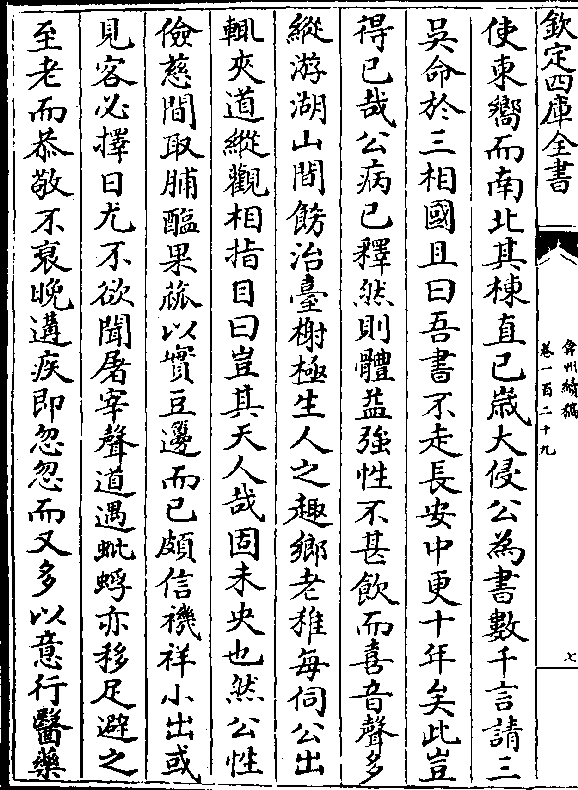 欽定四庫全書
弇州續稿
卷一百二十九
七
使東嚮而南北其棟直已歲大侵公為書數千言請三
吳命於三相國且曰吾書不走長安中更十年矣此豈
得已哉公病已釋然則體益強性不甚飲而喜音聲多
縱游湖山間餝治臺榭極生人之趣鄉老稚每伺公出
輒夾道縱觀相指目曰豈其天人哉固未央也然公性
儉慈間取脯醢果蓏以實豆籩而已頗信禨祥小出或
見客必擇日尤不欲聞屠宰聲道遇蚍蜉亦移足避之
至老而恭敬不衰晚遘疾即忽忽而又多以意行醫藥